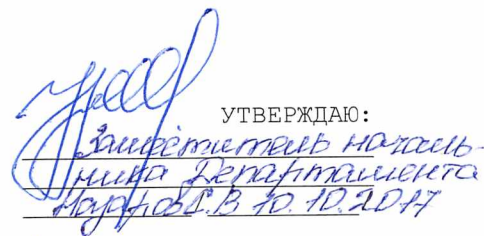 УТВЕРЖДАЮ:
Заместитель началь-
ника Департамента
Назаров С.В 10.10.2017